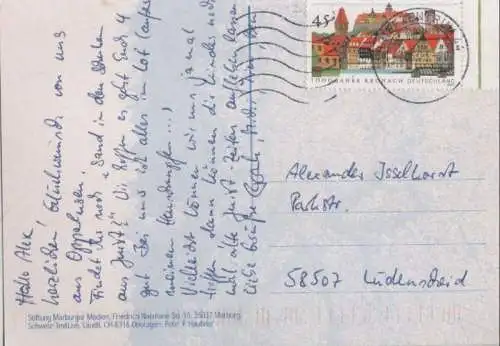 Hallo Alex!
herzlichen Glückwunsch von uns
aus Oppenhausen.
Findet Ihr noch "Sand in den Schuhen
aus Juist"? Wir hoffen es geht Euch 4
gut. Bei uns ist alles im Lot (außer
meinen
Vielleicht können wir uns ja mal
treffen, dann können die Kinder noch
mal alte Juist-Zeiten aufleben lassen
Liebe Grüße
45
1000 JAHRE KRONACH DEUTSCHLAND
Alexander Isselhorst
Parkstr.
58507 Lüdenscheid
Stiftung Marburger Medien, Friedrich-Naumann-Str. 15, 35037 Marburg
Schweiz: TextLive, CH-6316 Oberägeri, Foto: